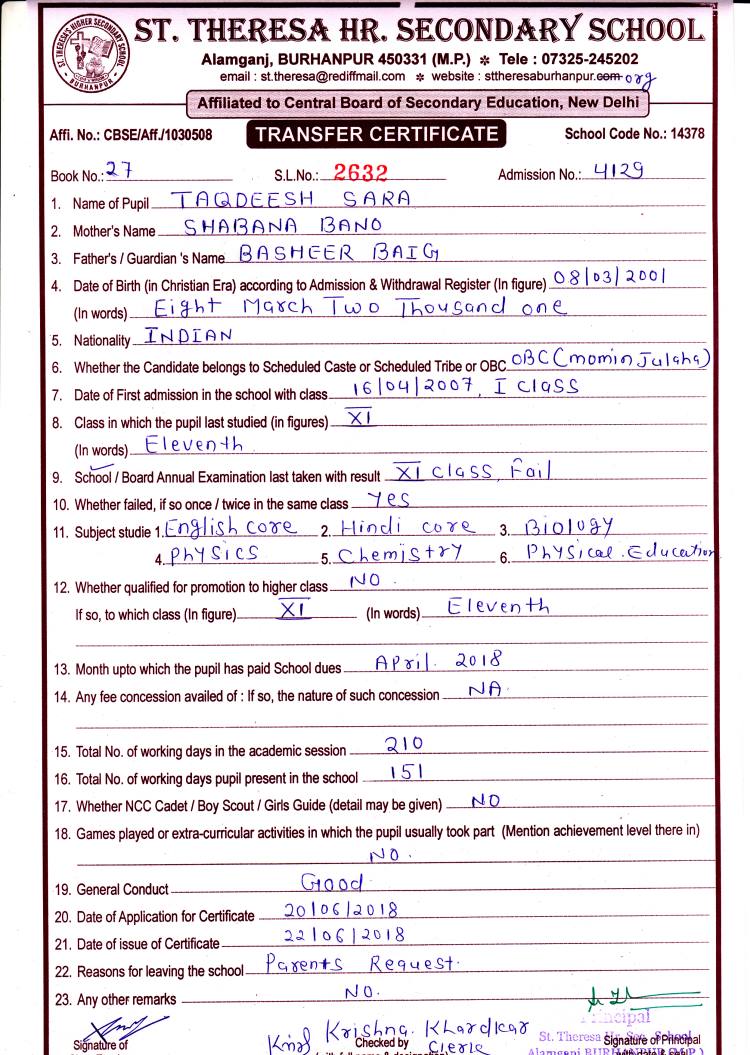 ST. THERESA'S HIGHER SECONDARY SCHOOL
BURHANPUR
ST. THERESA HR. SECONDARY SCHOOL
Alamganj, BURHANPUR 450331 (M.P.) * Tele : 07325-245202
email : st.theresa@rediffmail.com * website : sttheresaburhanpur.com org
Affiliated to Central Board of Secondary Education, New Delhi
Affi. No.: CBSE/Aff./1030508 TRANSFER CERTIFICATE School Code No.: 14378
Book No.: 27 S.L.No.: 2632 Admission No.: 4129
1. Name of Pupil TAQDEESH SARA
2. Mother's Name SHABANA BANO
3. Father's / Guardian 's Name BASHEER BAIG
4. Date of Birth (in Christian Era) according to Admission & Withdrawal Register (In figure) 08/03/2001
(In words) Eight March Two Thousand one
5. Nationality INDIAN
6. Whether the Candidate belongs to Scheduled Caste or Scheduled Tribe or OBC OBC (momin Julaha)
7. Date of First admission in the school with class 16/04/2007, I class
8. Class in which the pupil last studied (in figures) XI
(In words) Eleventh
9. School / Board Annual Examination last taken with result XI class, Fail
10. Whether failed, if so once / twice in the same class Yes
11. Subject studie 1. English core 2. Hindi core 3. Biology
4. Physics 5. Chemistry 6. Physical Education
12. Whether qualified for promotion to higher class NO.
If so, to which class (In figure) XI (In words) Eleventh
13. Month upto which the pupil has paid School dues April. 2018
14. Any fee concession availed of : If so, the nature of such concession NA.
15. Total No. of working days in the academic session 210
16. Total No. of working days pupil present in the school 151
17. Whether NCC Cadet / Boy Scout / Girls Guide (detail may be given) NO
18. Games played or extra-curricular activities in which the pupil usually took part (Mention achievement level there in)
NO.
19. General Conduct Good
20. Date of Application for Certificate 20/06/2018
21. Date of issue of Certificate 22/06/2018
22. Reasons for leaving the school Parents Request.
23. Any other remarks NO.
Principal
Krishna Khardkar
St. Theresa Hr. Sec. School
Signature of Checked by Clerk Signature of Principal
Alamganj BURHANPUR (M.P.)